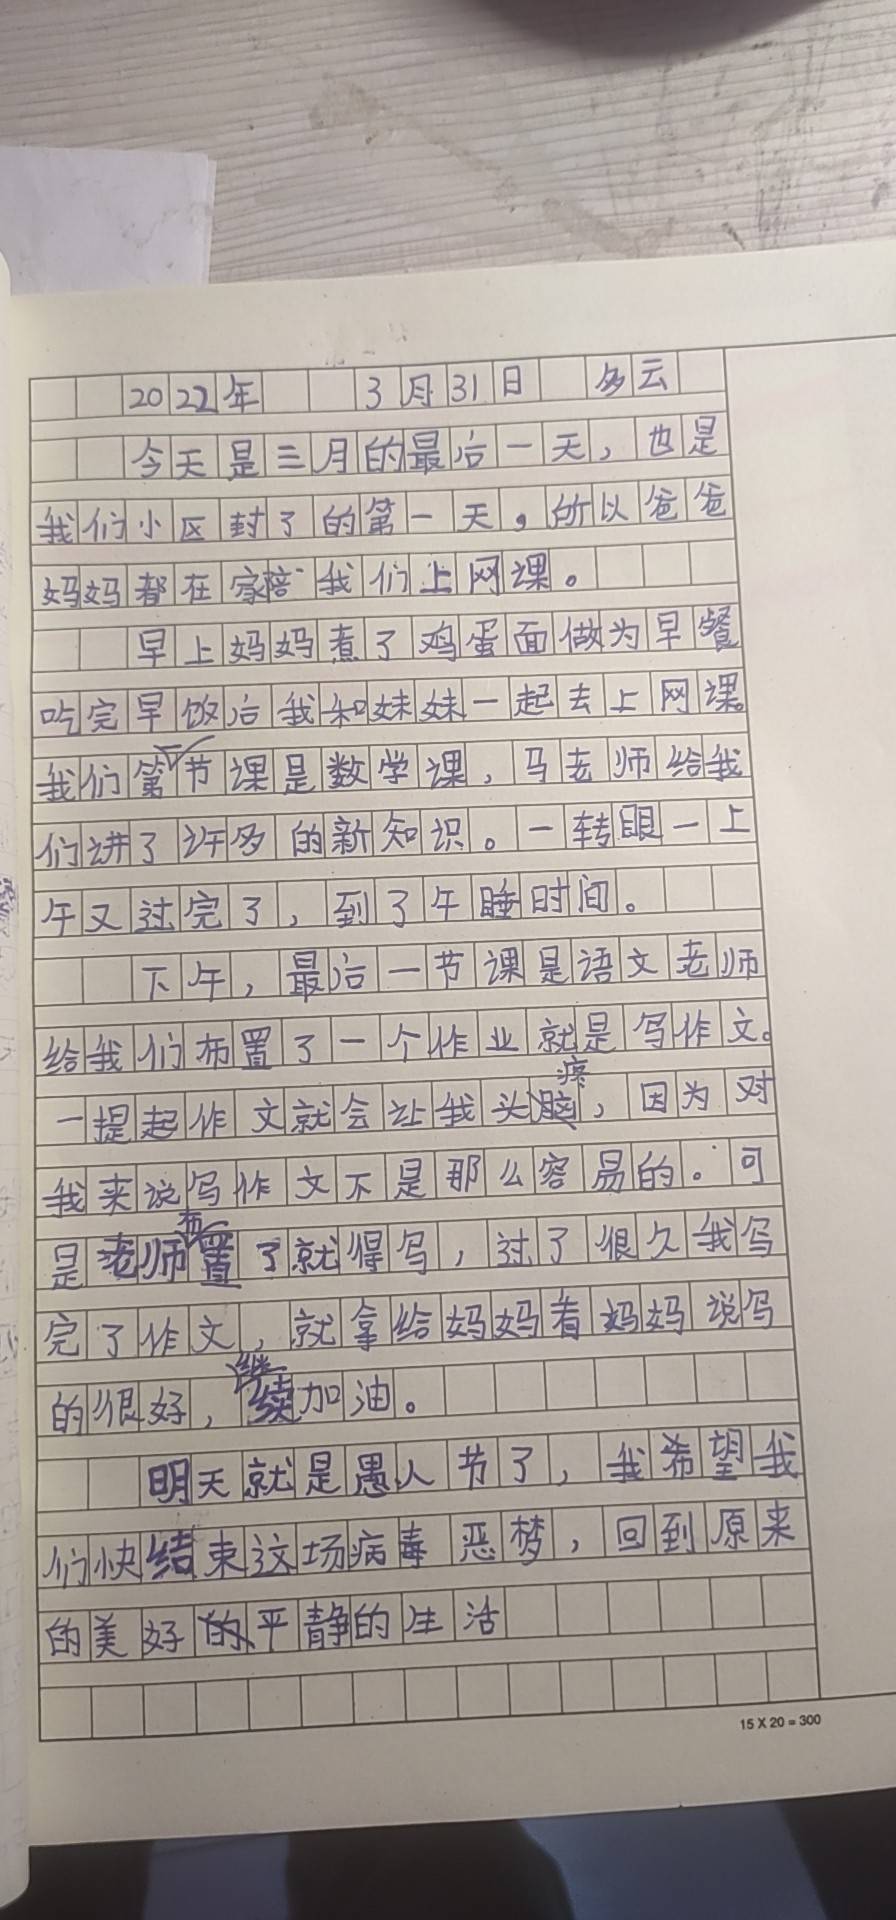 2022年 3月31日 多云
今天是三月的最后一天，也是
我们小区封了的第一天，所以爸爸
妈妈都在家陪我们上网课。
早上妈妈煮了鸡蛋面做为早餐
吃完早饭后我和妹妹一起去上网课。
我们第一节课是数学课，马老师给我
们讲了许多的新知识。一转眼一上
午又过完了，到了午睡时间。
下午，最后一节课是语文老师
给我们布置了一个作业就是写作文。
一提起作文就会让我头疼，因为对
我来说写作文不是那么容易的。可
是老师布置了就得写，过了很久我写
完了作文，就拿给妈妈看妈妈说写
的很好，继续加油。
明天就是愚人节了，我希望我
们快结束这场病毒恶梦，回到原来
的美好的平静的生活
15×20=300